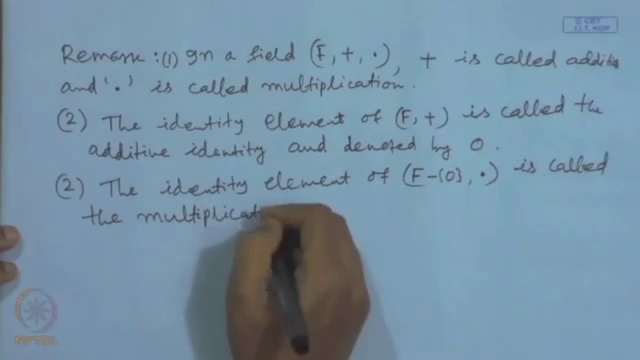 © CET
I.I.T. KGP
Remark :(1) In a field (F, +, ·), + is called additio
and '·' is called multiplication.
(2) The identity element of (F, +) is called the
additive identity and denoted by 0.
(2) The identity element of (F-{0}, ·) is called
the multiplicat
NPTEL